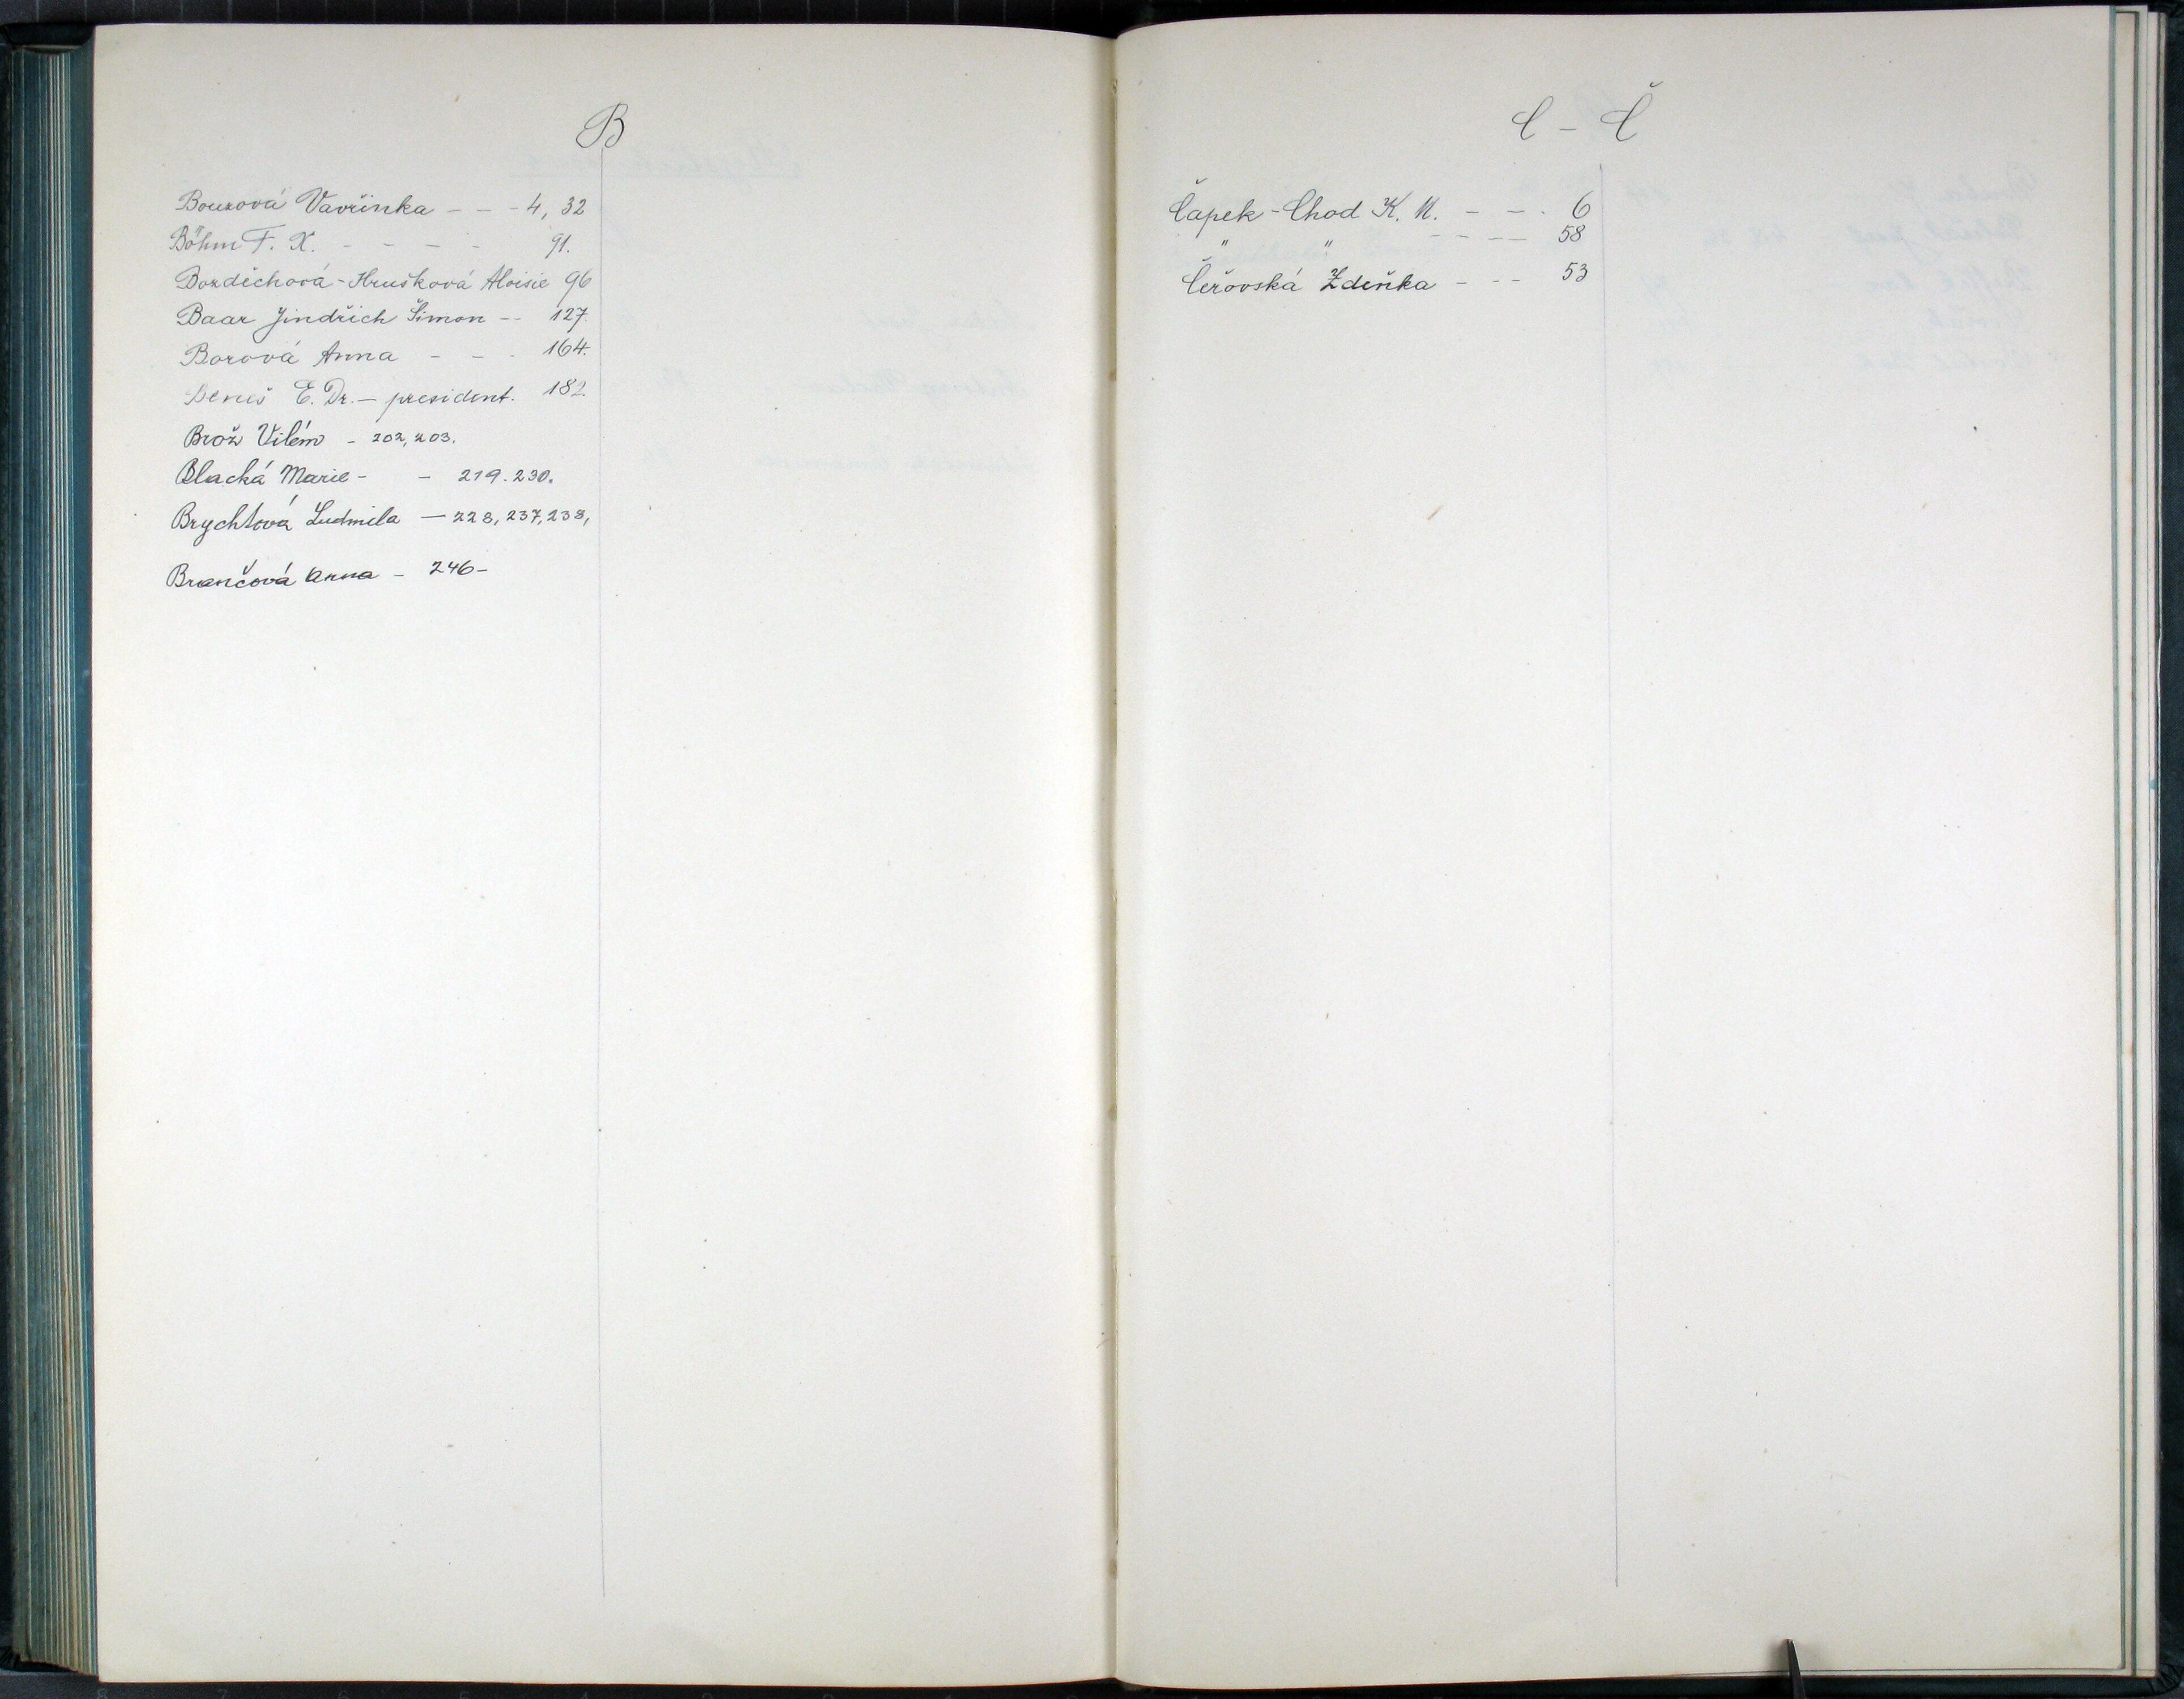 B
Bouzová Vavřinka - - - 4, 32
Böhm F. X. - - - - 91.
Bozděchová-Hrušková Aloisie 96
Baar Jindřich Šimon -- 127.
Borová Anna - - - 164.
Beneš E. Dr. — president. 182.
Brož Vilém - 202, 203.
Blacká Marie - - 219. 230.
Brychtová Ludmila — 228, 237, 238,
Brančová Anna - 246-
C - Č
Čapek-Chod K. M. - - - 6
" " - - - - 58
Čeřovská Zdeňka - - - 53